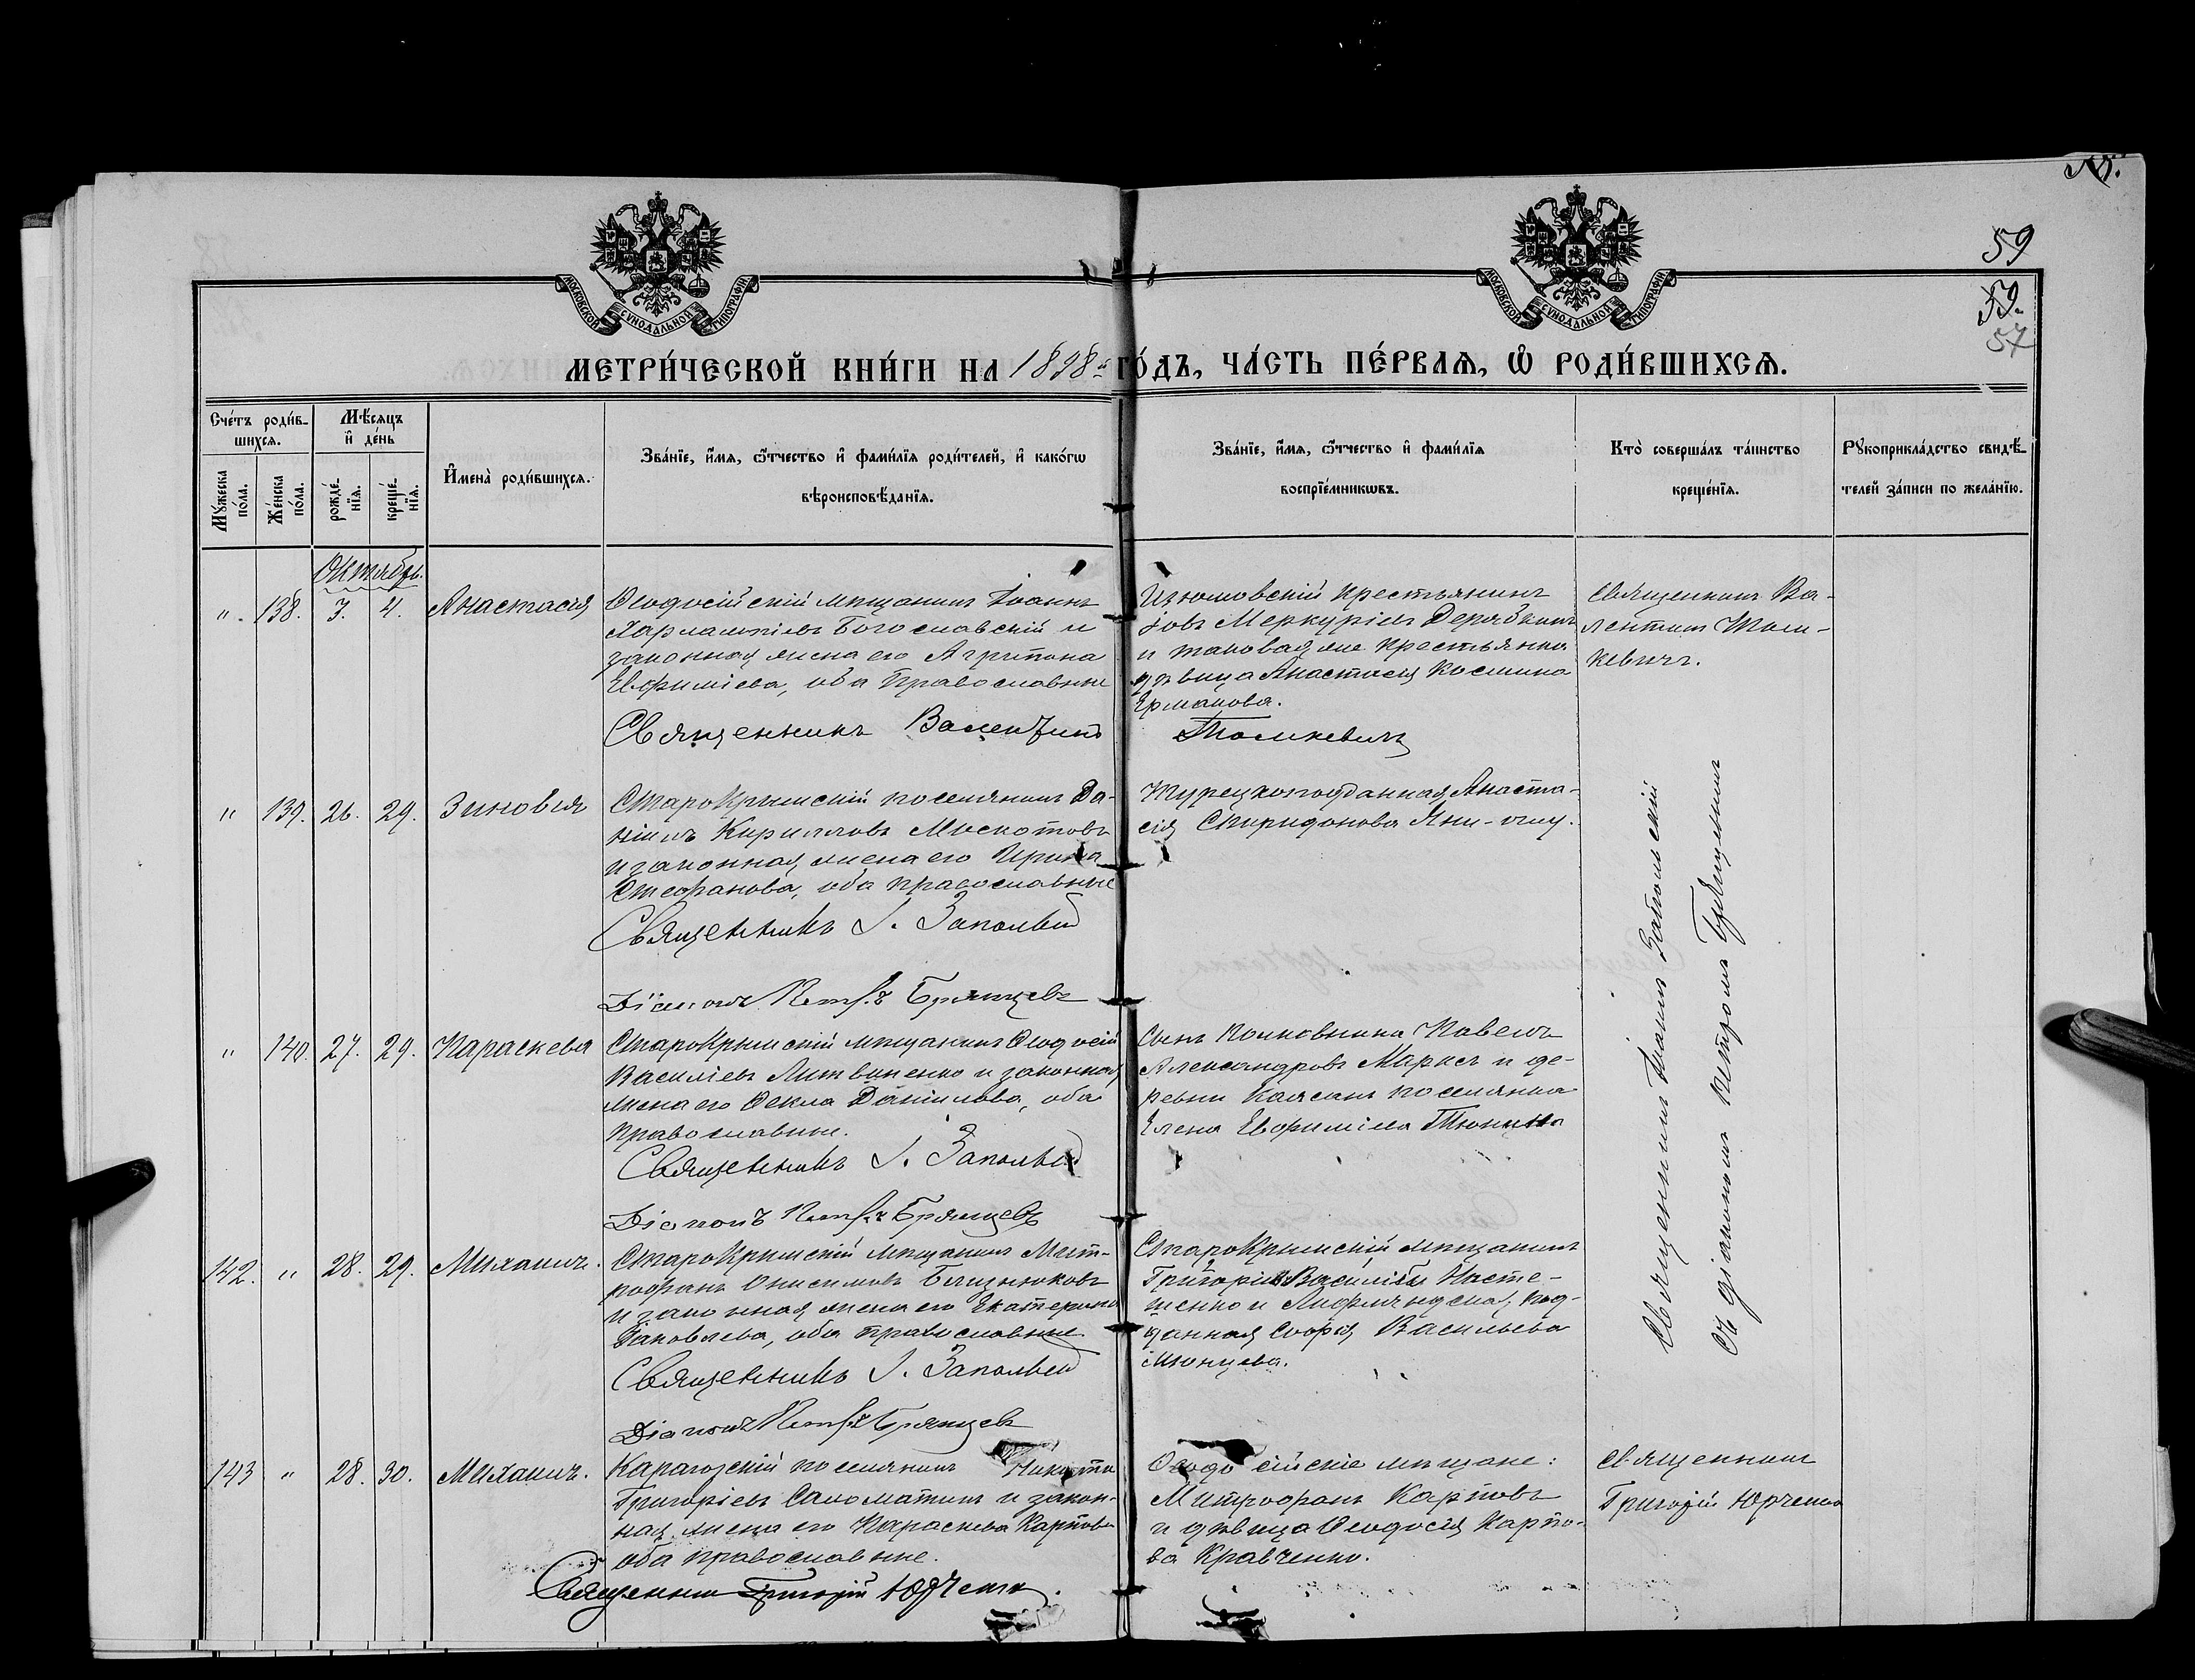 59
59.
57
МОСКОВСКОЙ СѴНОДАЛЬНОЙ ТИПОГРАФІИ
МОСКОВСКОЙ СѴНОДАЛЬНОЙ ТИПОГРАФІИ
МЕТРИ́ЧЕСКОЙ КНИ́ГИ НА 1898й ГО́ДЪ, ЧА́СТЬ ПЕ́РВАѦ, Ѡ҆ РОДИ́ВШИХСѦ.
Сче́тъ роди́в-
шихсѧ.
Мꙋ́жеска по́ла.
Же́нска по́ла.
Мѣ́сѧцъ
и҆ де́нь
рожде́-нїѧ.
креще́-нїѧ.
И҆мена̀ роди́вшихсѧ.
Зва́нїе, и҆́мѧ, ѻ҆́тчество и҆ фами́лїѧ роди́телей, и҆ како́гѡ
вѣроисповѣ́данїѧ.
Зва́нїе, и҆́мѧ, ѻ҆́тчество и҆ фами́лїѧ
воспрїе́мникѡвъ.
Кто̀ соверша́лъ та́инство
креще́нїѧ.
Рꙋкоприкла́дство свидѣ́-
телей за́писи по жела́нїю.
Октябрь.
" 138. 3. 4. Анастасія
Ѳеодосійскій мѣщанинъ Іоаннъ
Харлампіевъ Богославскій и
законная жена его Агрипина
Евфиміева, оба православные
Священникъ Валентинъ
Изюмовскій крестьянинъ
Іовъ Меркуріевъ Дерябкинъ
и таковая же крестьянка
дѣвица Анастасія Космина
Ермакова.
Томкевичъ
Священникъ Ва-
лентинъ Том-
кевичъ.
" 139. 26. 29. Зиновія
Старокрымскій поселянинъ Да-
ніилъ Кирилловъ Москотовъ
и законная жена его Ирина
Стефанова, оба православные
Священникъ І. Запольскій
Діаконъ Петръ Брянцевъ
Турецкоподданная Анаста-
сія Спиридонова
Священникъ Іоаннъ Запольскій
съ діакономъ Петромъ
" 140. 27. 29. Параскева
Старокрымскій мѣщанинъ Ѳеодосій
Василіевъ Литвиненко и законная
жена его Ѳекла Даніилова, оба
православные.
Священникъ І. Запольскій
Діаконъ Петръ Брянцевъ
Сынъ полковника Павелъ
Александровъ Марксъ и де-
ревни поселянка
Елена Евфиміева Тюнина
142. " 28. 29. Михаилъ.
Старокрымскій мѣщанинъ Мит-
рофанъ Онисимовъ
и законная жена его Екатерина
Іаковлева, оба православные
Священникъ І. Запольскій
Діаконъ Петръ Брянцевъ
Старокрымскій мѣщанинъ
Григорій Василіевъ Насте-
шенко и под-
данная Софія Васильева
143 " 28. 30. Михаилъ.
Карагозскій поселянинъ Никита
Григоріевъ Саломатинъ и закон-
ная жена его Параскева Карпова
оба православные.
Священникъ Григорій Юрченко.
Ѳеодосійскіе мѣщане:
Митрофанъ Карповъ
и дѣвица Ѳеодосія Карпо-
ва Кравченко.
Священникъ
Григорій Юрченко